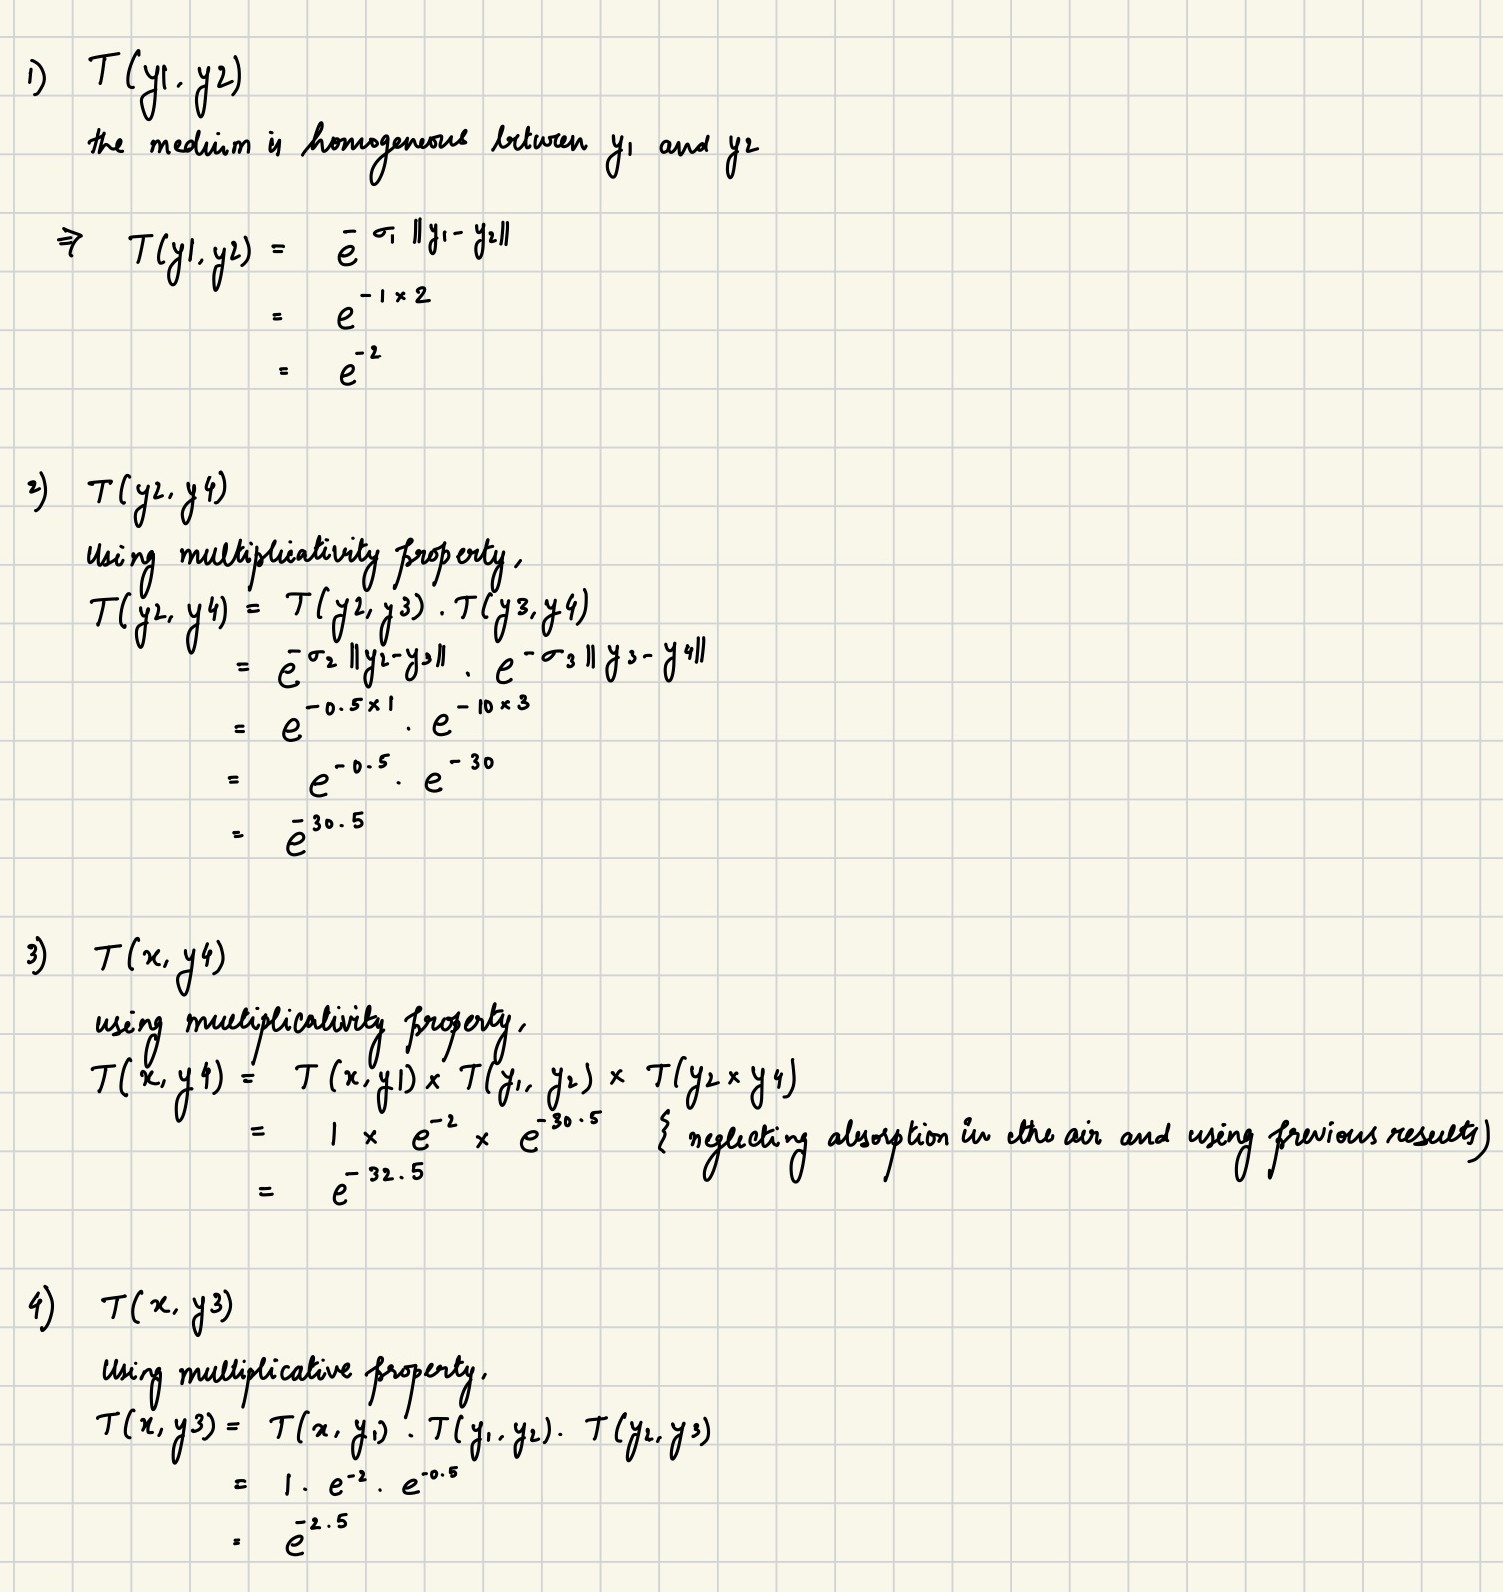 1) T(y1, y2)
the medium is homogeneous between y1 and y2
⇒ T(y1, y2) = e^-σ1 ||y1 - y2||
= e^-1×2
= e^-2
2) T(y2, y4)
Using multiplicativity property,
T(y2, y4) = T(y2, y3) . T(y3, y4)
= e^-σ2 ||y2-y3|| . e^-σ3 ||y3-y4||
= e^-0.5×1 . e^-10×3
= e^-0.5 . e^-30
= e^-30.5
3) T(x, y4)
using multiplicativity property,
T(x, y4) = T(x, y1) × T(y1, y2) × T(y2 × y4)
= 1 × e^-2 × e^-30.5 { neglecting absorption in the air and using previous results)
= e^-32.5
4) T(x, y3)
Using multiplicative property,
T(x, y3) = T(x, y1) . T(y1, y2) . T(y2, y3)
= 1 . e^-2 . e^-0.5
= e^-2.5